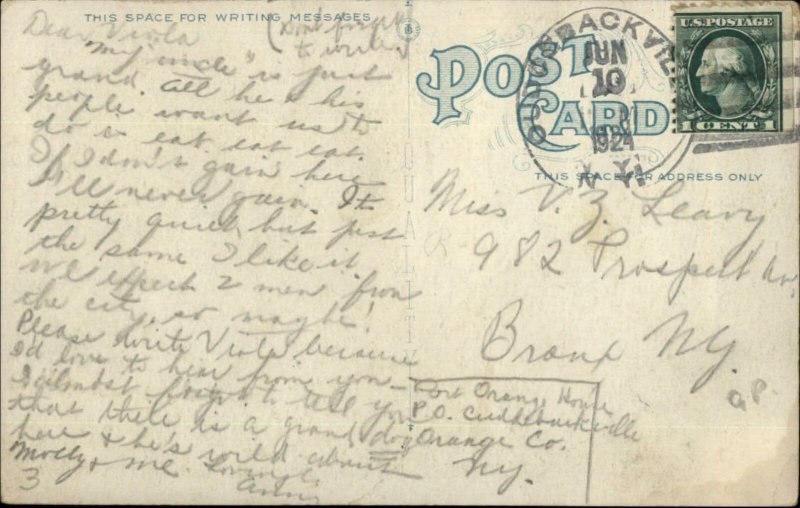 THIS SPACE FOR WRITING MESSAGES
Dear Viola
(Don't forget
to write)
My "uncle" is just
grand. All he & his
people want us to
do is eat, eat, eat.
If I don't gain here
I'll never gain. It's
pretty quiet but just
the same I like it.
We expect 2 men from
the city, so maybe!
Please write Viola because
I'd love to hear from you—
I almost forgot to tell you
that there is a grand dog
here & he's wild about
Molly & me. Lovingly
3
POST
CARD
CUDDEBACKVILLE
JUN
10
1924
N.Y.
U.S. POSTAGE
1 CENT 1
THIS SPACE FOR ADDRESS ONLY
Miss V. Z. Leavy
982 Prospect Av.
Bronx NY.
Port Orange House
P.O. Cuddebackville
Orange Co.
NY.